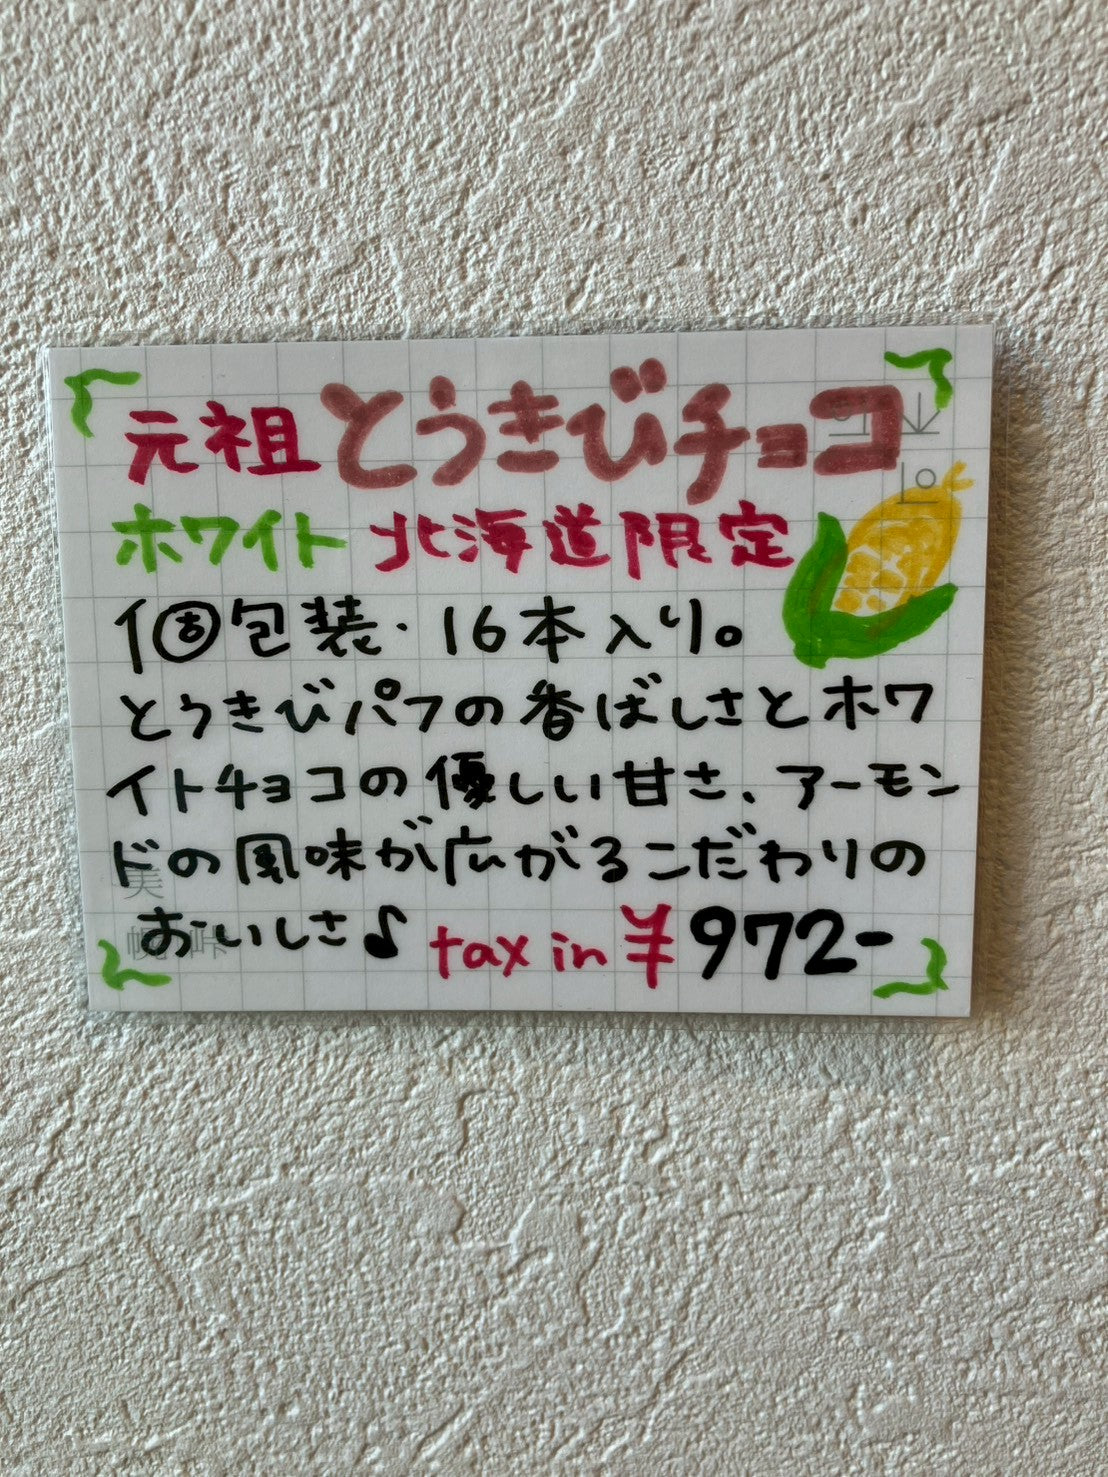 元祖とうきびチョコ
ホワイト 北海道限定
1個包装・16本入り。
とうきびパフの香ばしさとホワ
イトチョコの優しい甘さ、アーモン
ドの風味が広がるこだわりの
おいしさ♪ tax in ¥972-